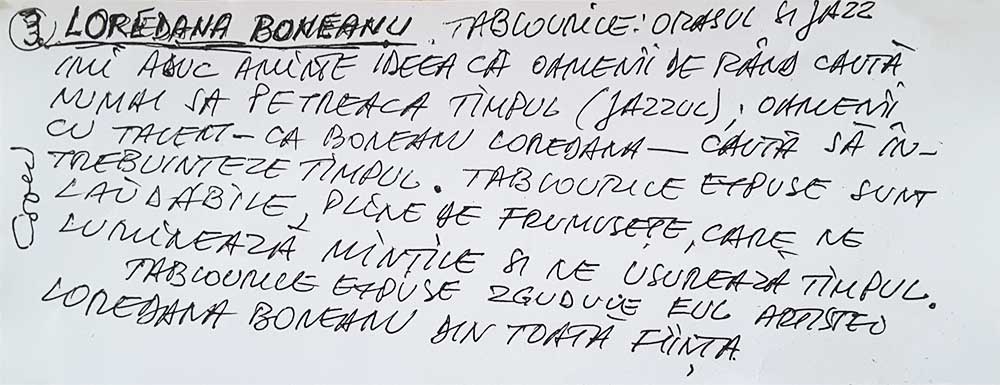 3. LOREDANA BONEANU. TABLOURILE: ORASUL SI JAZZ
IMI ADUC AMINTE IDEEA CĂ OAMENII DE RÂND CAUTĂ
NUMAI SA PETREACA TIMPUL (JAZZUL); OAMENII
CU TALENT – CA BONEANU LOREDANA – CAUTĂ SĂ ÎN–
TREBUINTEZE TIMPUL. TABLOURILE EXPUSE SUNT
LAUDABILE, PLINE DE FRUMUSEȚE, CARE NE
LUMINEAZĂ MINȚILE SI NE USUREAZĂ TIMPUL.
TABLOURILE EXPUSE ZGUDUIE EUL ARTISTEI
LOREDANA BONEANU DIN TOATĂ FIINȚA.